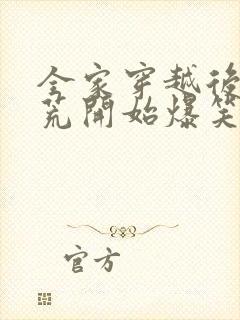 全家穿越後
荒開始爆笑
官方